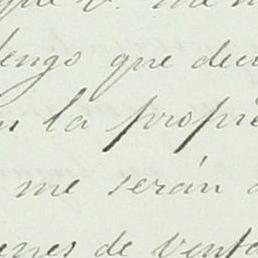 que V. me
tengo que deci
n la propie
me serán
enes de venta